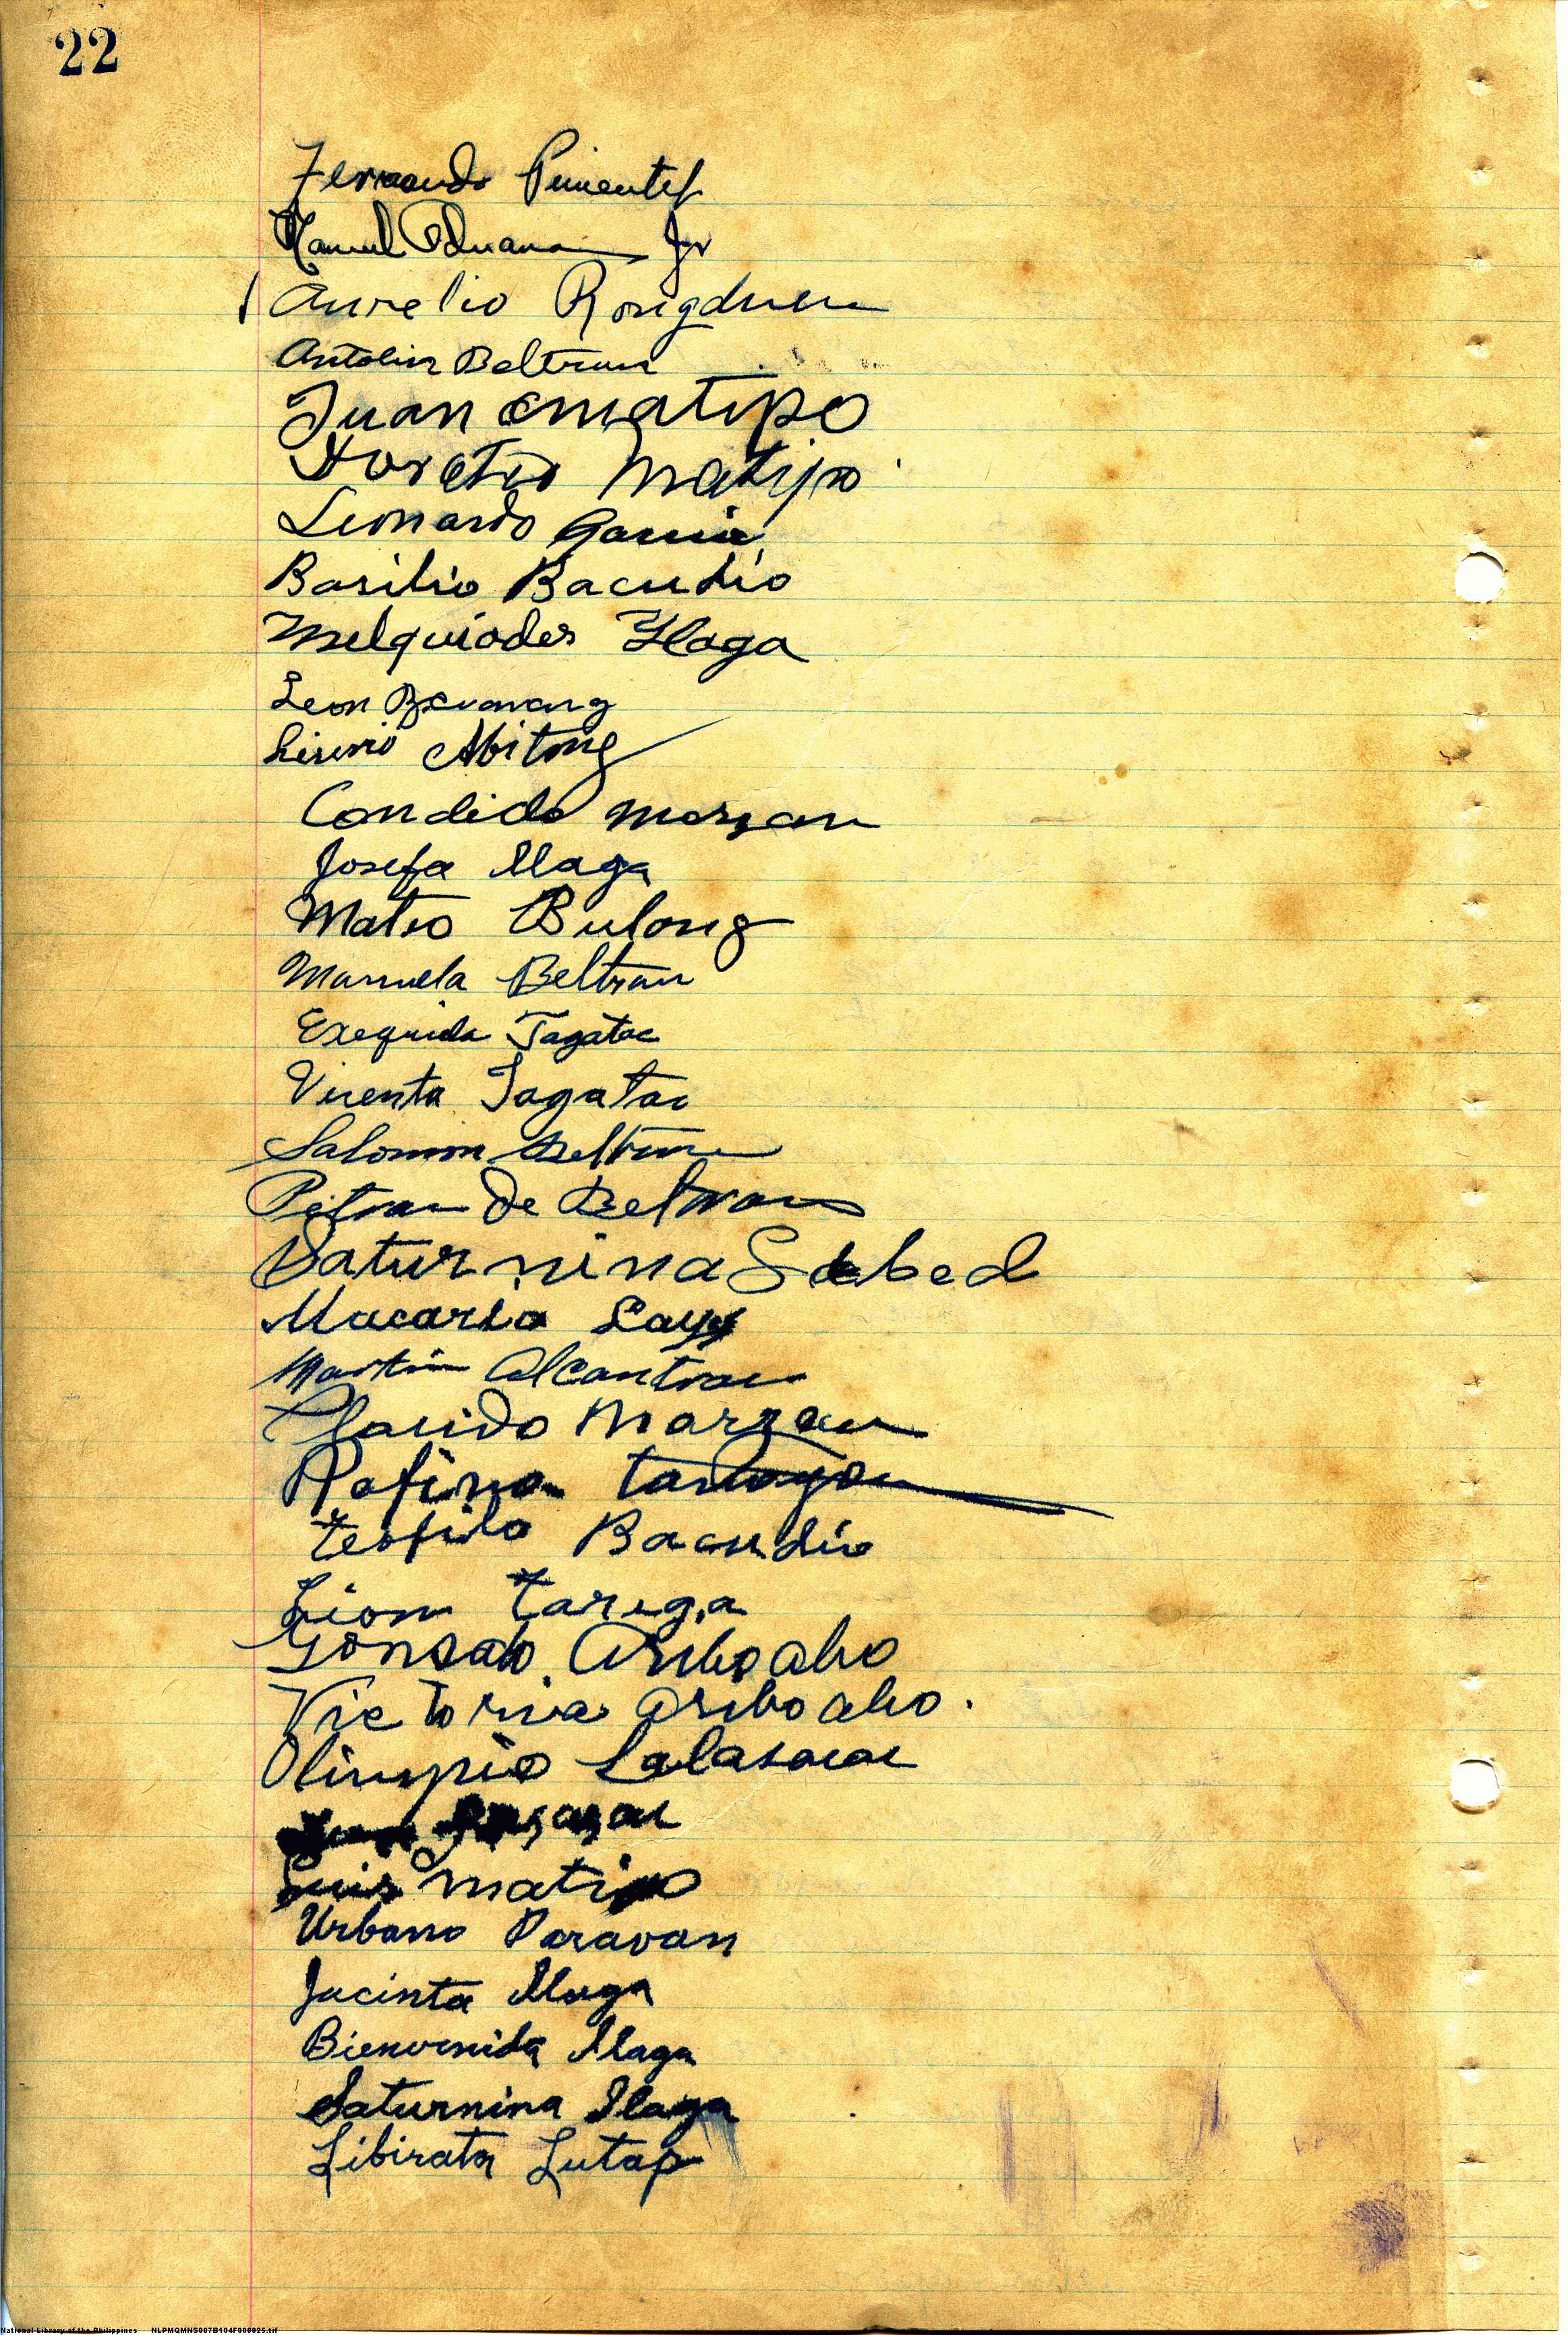 22
Fernando Pimentel
Manuel Jr
Aurelio
Antolin Beltran
Juan Omatipo
Horatio Matipo
Leonardo Garcia
Basilio Bacudio
Melquiades Ylaga
Leon
Abitong
Condido Marzan
Josefa Ilaga
Mateo Bulong
Manuela Beltran
Exequida Tagatac
Vicenta Tagatac
Salomon Beltran
Petra De Beltran
Saturnina Sabed
Macaria
Martin Alcantara
Placido Marzan
Rofina
Teofilo Bacudio
Leon Tarega
Gonsalo
Victoria
Olimpio
Luis Matipo
Urbano Paravan
Jacinta Ilaga
Bienvenida Ilaga
Saturnina Ilaga
Libirata Lutap
National Library of the Philippines NLPMQMNS007B104F000025.tif